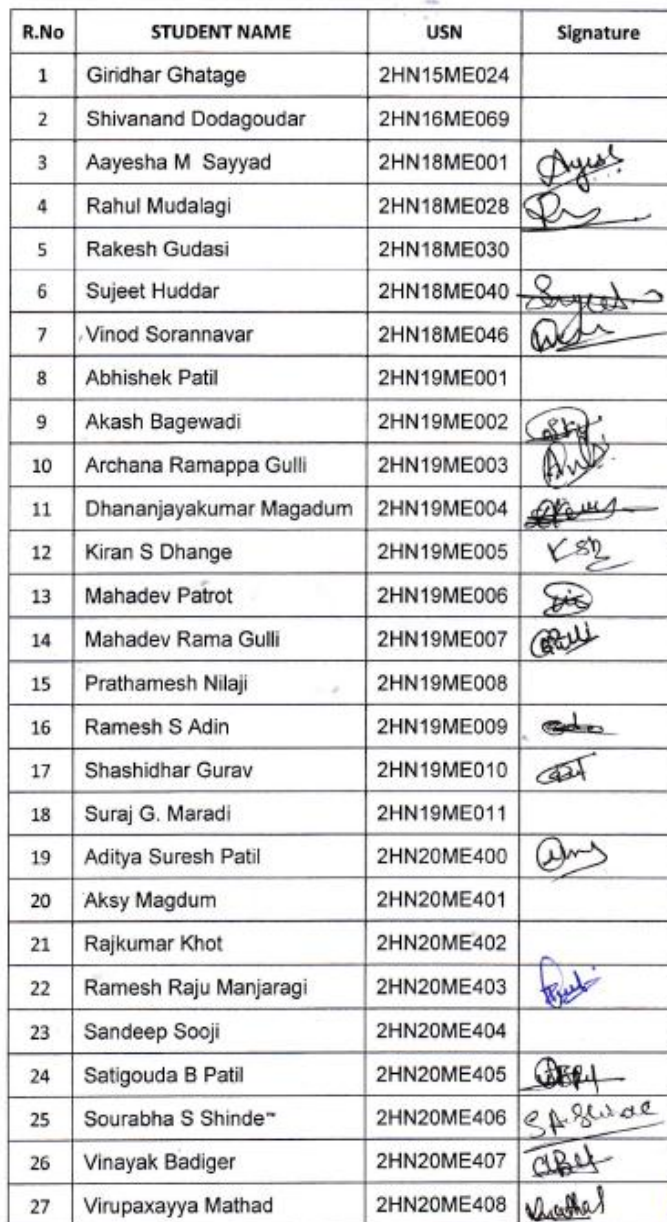 R.No STUDENT NAME USN Signature
1 Giridhar Ghatage 2HN15ME024
2 Shivanand Dodagoudar 2HN16ME069
3 Aayesha M Sayyad 2HN18ME001
4 Rahul Mudalagi 2HN18ME028
5 Rakesh Gudasi 2HN18ME030
6 Sujeet Huddar 2HN18ME040
7 Vinod Sorannavar 2HN18ME046
8 Abhishek Patil 2HN19ME001
9 Akash Bagewadi 2HN19ME002
10 Archana Ramappa Gulli 2HN19ME003
11 Dhananjayakumar Magadum 2HN19ME004
12 Kiran S Dhange 2HN19ME005
13 Mahadev Patrot 2HN19ME006
14 Mahadev Rama Gulli 2HN19ME007
15 Prathamesh Nilaji 2HN19ME008
16 Ramesh S Adin 2HN19ME009
17 Shashidhar Gurav 2HN19ME010
18 Suraj G. Maradi 2HN19ME011
19 Aditya Suresh Patil 2HN20ME400
20 Aksy Magdum 2HN20ME401
21 Rajkumar Khot 2HN20ME402
22 Ramesh Raju Manjaragi 2HN20ME403
23 Sandeep Sooji 2HN20ME404
24 Satigouda B Patil 2HN20ME405
25 Sourabha S Shinde~ 2HN20ME406
26 Vinayak Badiger 2HN20ME407
27 Virupaxayya Mathad 2HN20ME408